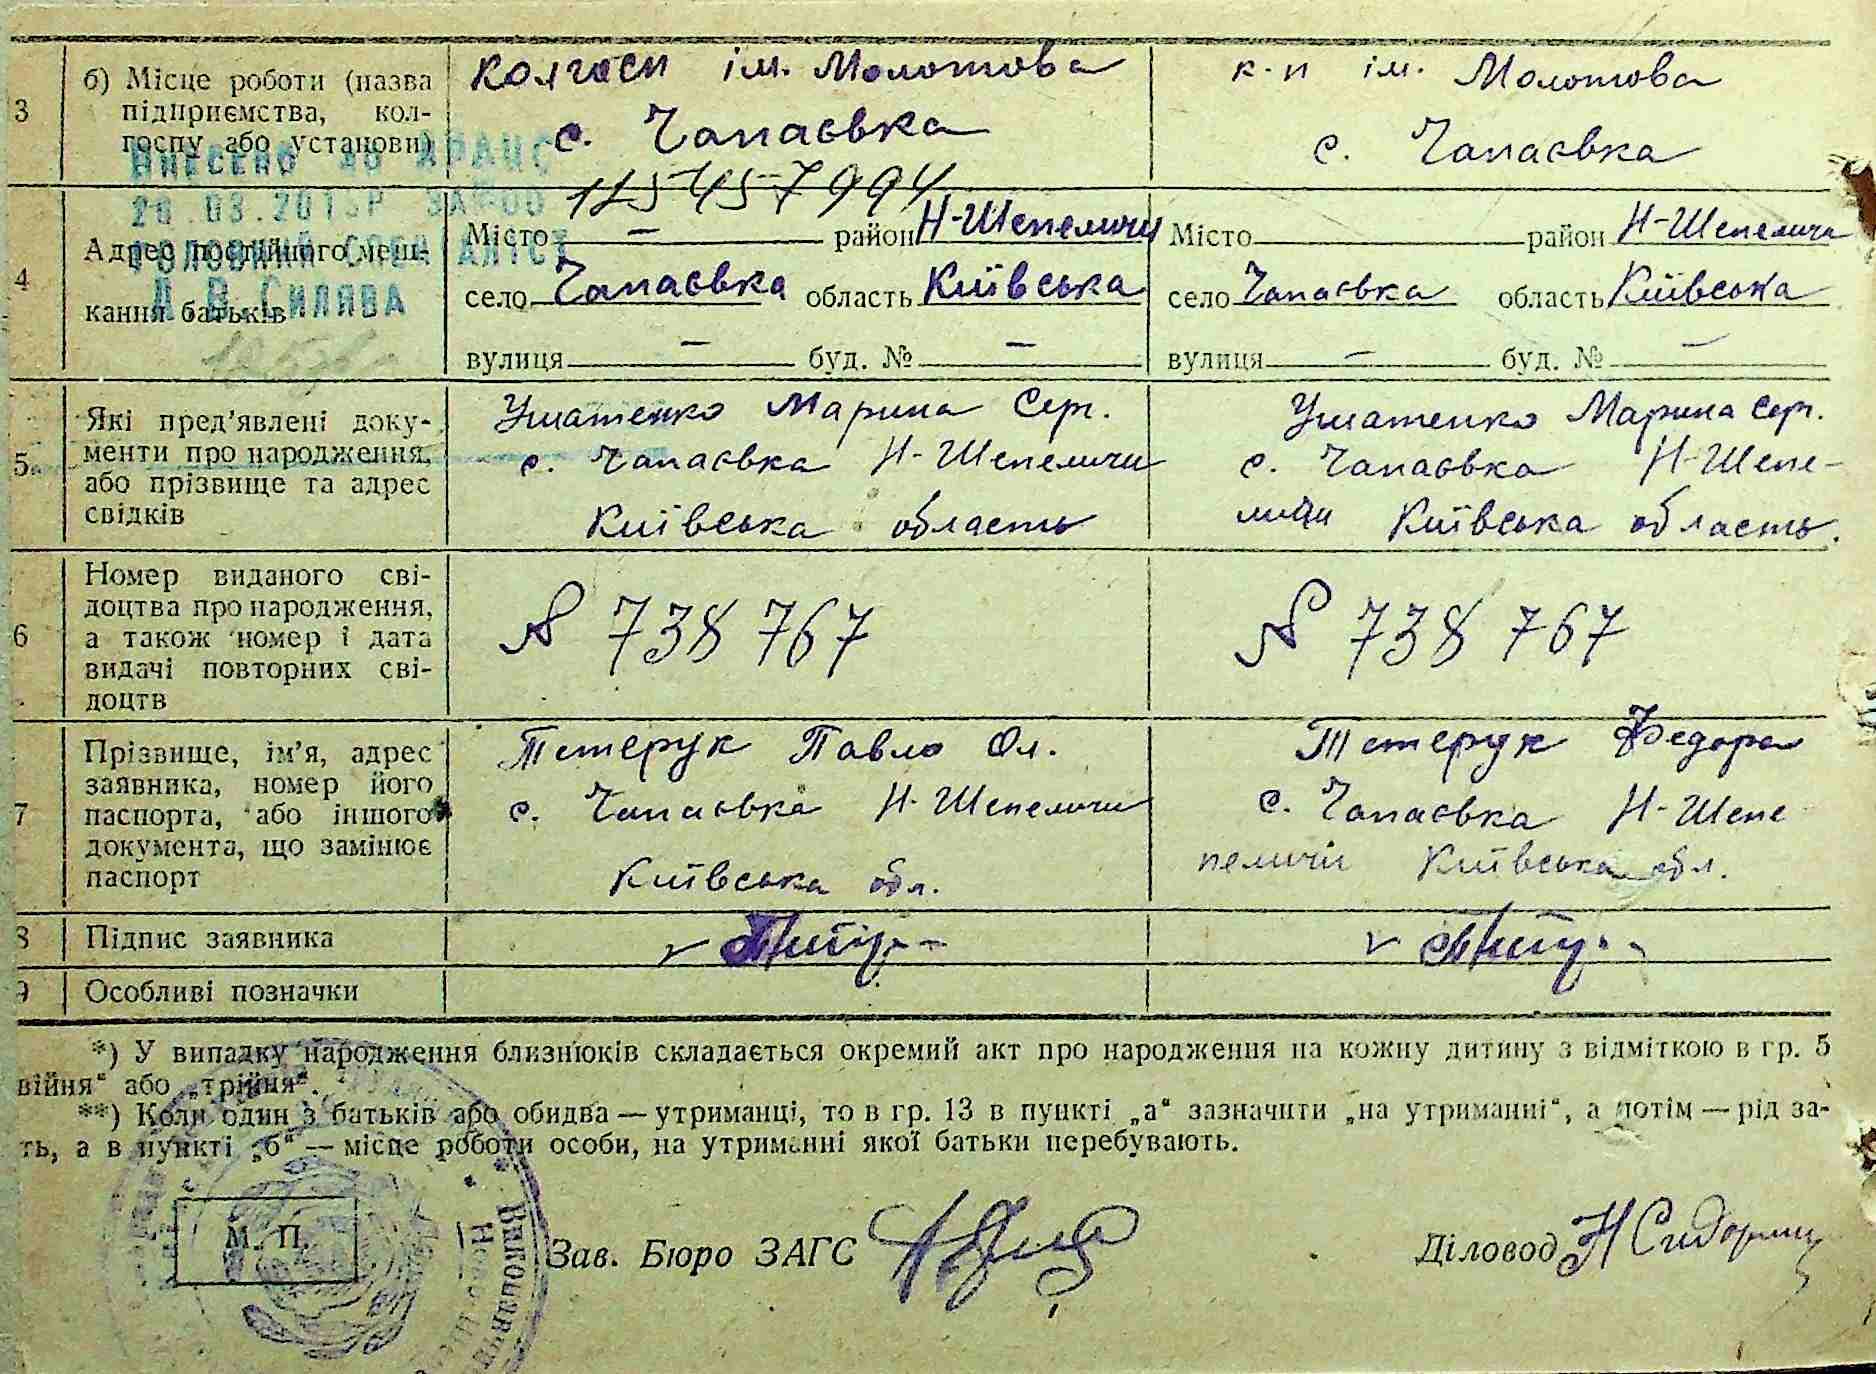 3
б) Місце роботи (назва
підприємства, кол-
госпу або установи)
колгосп ім. Молотова
с. Чапаєвка
к-п ім. Молотова
с. Чапаєвка
ВНЕСЕНО до ДРАЦС
ГОЛОВНИЙ СПЕЦІАЛІСТ
Д. В. СИЛЯВА
4
Адрес постійного меш-
кання батьків
Місто — район Н-Шепеличи
село Чапаєвка область Київська
вулиця — буд. № —
Місто район Н-Шепеличи
село Чапаєвка область Київська
вулиця — буд. № —
5
Які пред'явлені доку-
менти про народження,
або прізвище та адрес
свідків
Уматенко Марина Серг.
с. Чапаєвка Н-Шепеличи
Київська область
Уматенко Марина Серг.
с. Чапаєвка Н-Шепе-
личи Київська область.
6
Номер виданого сві-
доцтва про народження,
а також номер і дата
видачі повторних сві-
доцтв
№ 738767
№ 738767
7
Прізвище, ім'я, адрес
заявника, номер його
паспорта, або іншого
документа, що замінює
паспорт
Тетерук Павло Ол.
с. Чапаєвка Н-Шепеличи
Київська обл.
Тетерук Федора
с. Чапаєвка Н-Шепе
пеличи Київська обл.
8
Підпис заявника
9
Особливі позначки
*) У випадку народження близнюків складається окремий акт про народження на кожну дитину з відміткою в гр. 5
війня" або „трійня".
**) Коли один з батьків або обидва — утриманці, то в гр. 13 в пункті „а" зазначити „на утриманні", а потім — рід за-
ть, а в пункті „б" — місце роботи особи, на утриманні якої батьки перебувають.
М. П.
Зав. Бюро ЗАГС
Діловод